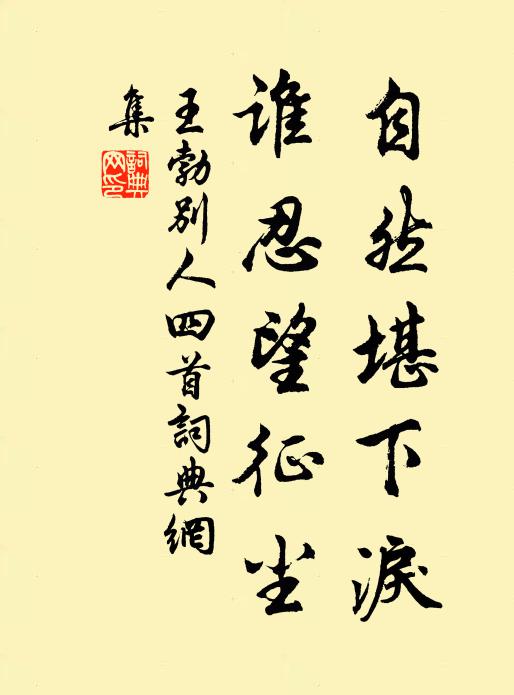 自然堪下淚
誰忍望征尘
王勃別人四首詞典網
集
詞典
网印